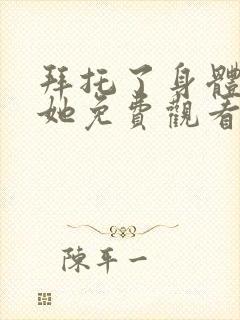 拜托了身體
她免費觀看
陳平一